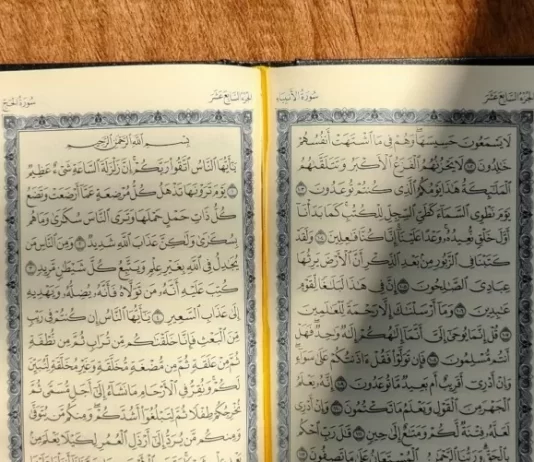 الجزء السابع عشر
سورة الأنبياء
لَا يَسْمَعُونَ حَسِيسَهَا ۖ وَهُمْ فِي مَا ٱشْتَهَتْ أَنفُسُهُمْ
خَٰلِدُونَ ١٠٢ لَا يَحْزُنُهُمُ ٱلْفَزَعُ ٱلْأَكْبَرُ وَتَتَلَقَّىٰهُمُ
ٱلْمَلَٰٓئِكَةُ هَٰذَا يَوْمُكُمُ ٱلَّذِي كُنتُمْ تُوعَدُونَ ١٠٣
يَوْمَ نَطْوِي ٱلسَّمَآءَ كَطَيِّ ٱلسِّجِلِّ لِلْكُتُبِ ۚ كَمَا بَدَأْنَآ
أَوَّلَ خَلْقٍ نُّعِيدُهُۥ ۚ وَعْدًا عَلَيْنَآ ۚ إِنَّا كُنَّا فَٰعِلِينَ ١٠٤ وَلَقَدْ
كَتَبْنَا فِي ٱلزَّبُورِ مِنۢ بَعْدِ ٱلذِّكْرِ أَنَّ ٱلْأَرْضَ يَرِثُهَا
عِبَادِيَ ٱلصَّٰلِحُونَ ١٠٥ إِنَّ فِي هَٰذَا لَبَلَٰغًا لِّقَوْمٍ
عَٰبِدِينَ ١٠٦ وَمَآ أَرْسَلْنَٰكَ إِلَّا رَحْمَةً لِّلْعَٰلَمِينَ
١٠٧ قُلْ إِنَّمَا يُوحَىٰٓ إِلَيَّ أَنَّمَآ إِلَٰهُكُمْ إِلَٰهٌ وَٰحِدٌ ۖ فَهَلْ
أَنتُم مُّسْلِمُونَ ١٠٨ فَإِن تَوَلَّوْا۟ فَقُلْ ءَاذَنتُكُمْ عَلَىٰ سَوَآءٍ ۖ
وَإِنْ أَدْرِيٓ أَقَرِيبٌ أَم بَعِيدٌ مَّا تُوعَدُونَ ١٠٩ إِنَّهُۥ يَعْلَمُ
ٱلْجَهْرَ مِنَ ٱلْقَوْلِ وَيَعْلَمُ مَا تَكْتُمُونَ ١١٠ وَإِنْ أَدْرِي
لَعَلَّهُۥ فِتْنَةٌ لَّكُمْ وَمَتَٰعٌ إِلَىٰ حِينٍ ١١١ قَٰلَ رَبِّ ٱحْكُم
بِٱلْحَقِّ ۗ وَرَبُّنَا ٱلرَّحْمَٰنُ ٱلْمُسْتَعَانُ عَلَىٰ مَا تَصِفُونَ ١١٢
الجزء السابع عشر
سورة الحج
بِسْمِ ٱللَّهِ ٱلرَّحْمَٰنِ ٱلرَّحِيمِ
يَٰٓأَيُّهَا ٱلنَّاسُ ٱتَّقُوا۟ رَبَّكُمْ ۚ إِنَّ زَلْزَلَةَ ٱلسَّاعَةِ شَيْءٌ عَظِيمٌ
١ يَوْمَ تَرَوْنَهَا تَذْهَلُ كُلُّ مُرْضِعَةٍ عَمَّآ أَرْضَعَتْ وَتَضَعُ
كُلُّ ذَاتِ حَمْلٍ حَمْلَهَا وَتَرَى ٱلنَّاسَ سُكَٰرَىٰ وَمَا هُم
بِسُكَٰرَىٰ وَلَٰكِنَّ عَذَابَ ٱللَّهِ شَدِيدٌ ٢ وَمِنَ ٱلنَّاسِ مَن
يُجَٰدِلُ فِي ٱللَّهِ بِغَيْرِ عِلْمٍ وَيَتَّبِعُ كُلَّ شَيْطَٰنٍ مَّرِيدٍ ٣
كُتِبَ عَلَيْهِ أَنَّهُۥ مَن تَوَلَّاهُ فَأَنَّهُۥ يُضِلُّهُۥ وَيَهْدِيهِ
إِلَىٰ عَذَابِ ٱلسَّعِيرِ ٤ يَٰٓأَيُّهَا ٱلنَّاسُ إِن كُنتُمْ فِي رَيْبٍ
مِّنَ ٱلْبَعْثِ فَإِنَّا خَلَقْنَٰكُم مِّن تُرَابٍ ثُمَّ مِن نُّطْفَةٍ
ثُمَّ مِنْ عَلَقَةٍ ثُمَّ مِن مُّضْغَةٍ مُّخَلَّقَةٍ وَغَيْرِ مُخَلَّقَةٍ لِّنُبَيِّنَ
لَكُمْ ۚ وَنُقِرُّ فِي ٱلْأَرْحَامِ مَا نَشَآءُ إِلَىٰٓ أَجَلٍ مُّسَمًّى ثُمَّ
نُخْرِجُكُمْ طِفْلًا ثُمَّ لِتَبْلُغُوٓا۟ أَشُدَّكُمْ ۖ وَمِنكُم مَّن يُتَوَفَّىٰ
وَمِنكُم مَّن يُرَدُّ إِلَىٰٓ أَرْذَلِ ٱلْعُمُرِ لِكَيْلَا يَعْلَمَ مِنۢ